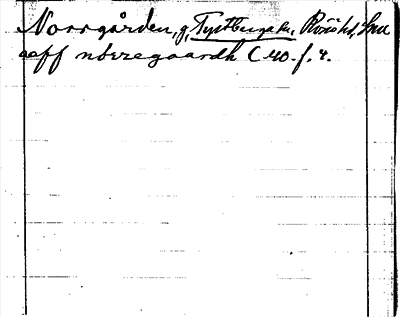 Norrgården, g, Tystberga sn, Rönö hd, Srm
aff nörregaardh C 40. f. 4.